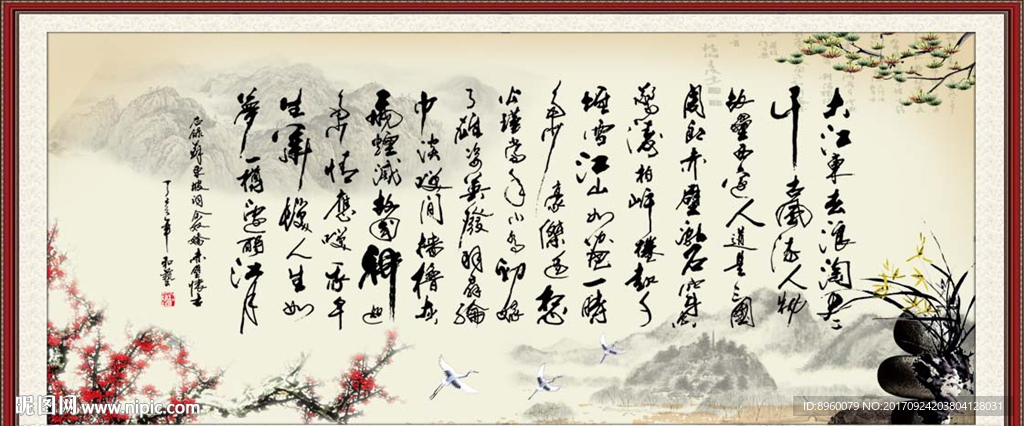 大江東去浪淘盡
千古風流人物
故壘西邊人道是三國
周郎赤壁亂石穿空
驚濤拍岸捲起千
堆雪江山如畫一時
多少豪傑遥想
公瑾當年小喬初嫁
了雄姿英發羽扇綸
巾談笑間檣櫓灰
飛煙滅故國神遊
多情應笑我早
生華髮人生如
夢一樽還酹江月
錄蘇東坡詞念奴嬌赤壁懷古
昵图网 www.nipic.com
ID:8960079 NO:20170924203804128031